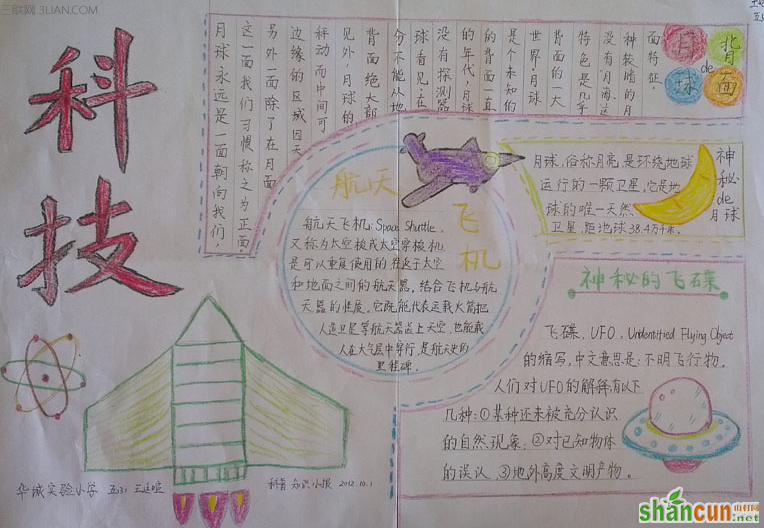 三联网 3LIAN.COM
科技
月球永远是一面朝向我们,
这一面我们习惯称之为正面.
另外一面除了在月面
边缘的区域因天
秤动而中间可
见外,月球的
背面绝大部
分不能从地
球看见.在
没有探测器
的年代,月球
的背面一直
是个未知的
世界.月球
背面的一大
特色是几乎
没有"月海"这
种较暗的月
面特征.
月球
de
背面
航天
飞机
航天飞机: Space Shuttle,
又称为太空梭或太空穿梭机,
是可以重复使用的 往返于太空
和地面之间的航天器, 结合飞机与航
天器的性质, 它既能代表运载火箭把
人造卫星等航天器送上天空, 也能载
人在大气层中穿行, 是航天史的
里程碑.
神秘de月球
月球, 俗称月亮, 是环绕地球
运行的一颗卫星, 它是地
球的唯一天然
卫星, 距地球38.4万千米.
神秘的飞碟
飞碟, UFO, Undentified Flying Object
的缩写, 中文意思是: 不明飞行物.
人们对UFO的解释有以下
几种: ①某种还未被充分认识
的自然现象; ②对已知物体
的误认, ③地外高度文明产物.
华城实验小学
科普知识小报 2012.10.1
shancun
山村网
.net